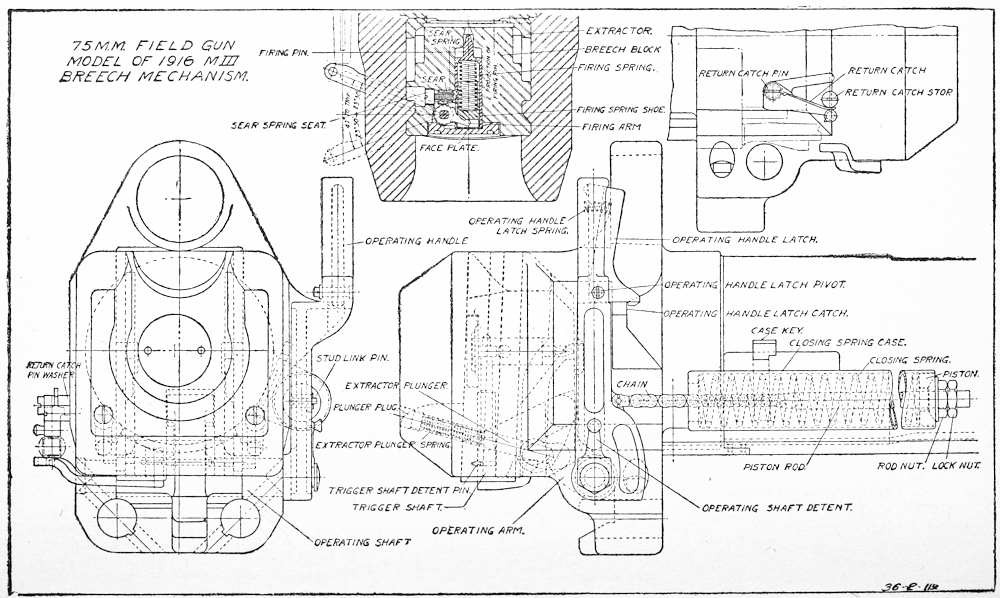 75 M.M. FIELD GUN
MODEL OF 1916 M.III
BREECH MECHANISM.
FIRING PIN.
SEAR SPRING SEAT.
SEAR
SPRING
SEAR
FACE PLATE.
EXTRACTOR.
BREECH BLOCK
FIRING SPRING.
FIRING SPRING SHOE.
FIRING ARM
RETURN CATCH PIN
RETURN CATCH
RETURN CATCH STOP
OPERATING HANDLE
OPERATING HANDLE
LATCH SPRING.
OPERATING HANDLE LATCH.
OPERATING HANDLE LATCH PIVOT.
OPERATING HANDLE LATCH CATCH.
CASE KEY.
CLOSING SPRING CASE.
CLOSING SPRING.
PISTON.
CHAIN
PISTON ROD.
ROD NUT.
LOCK NUT.
RETURN CATCH
PIN WASHER
STUD LINK PIN.
EXTRACTOR PLUNGER
PLUNGER PLUG
EXTRACTOR PLUNGER SPRING
TRIGGER SHAFT DETENT PIN.
TRIGGER SHAFT.
OPERATING ARM.
OPERATING SHAFT
OPERATING SHAFT DETENT.